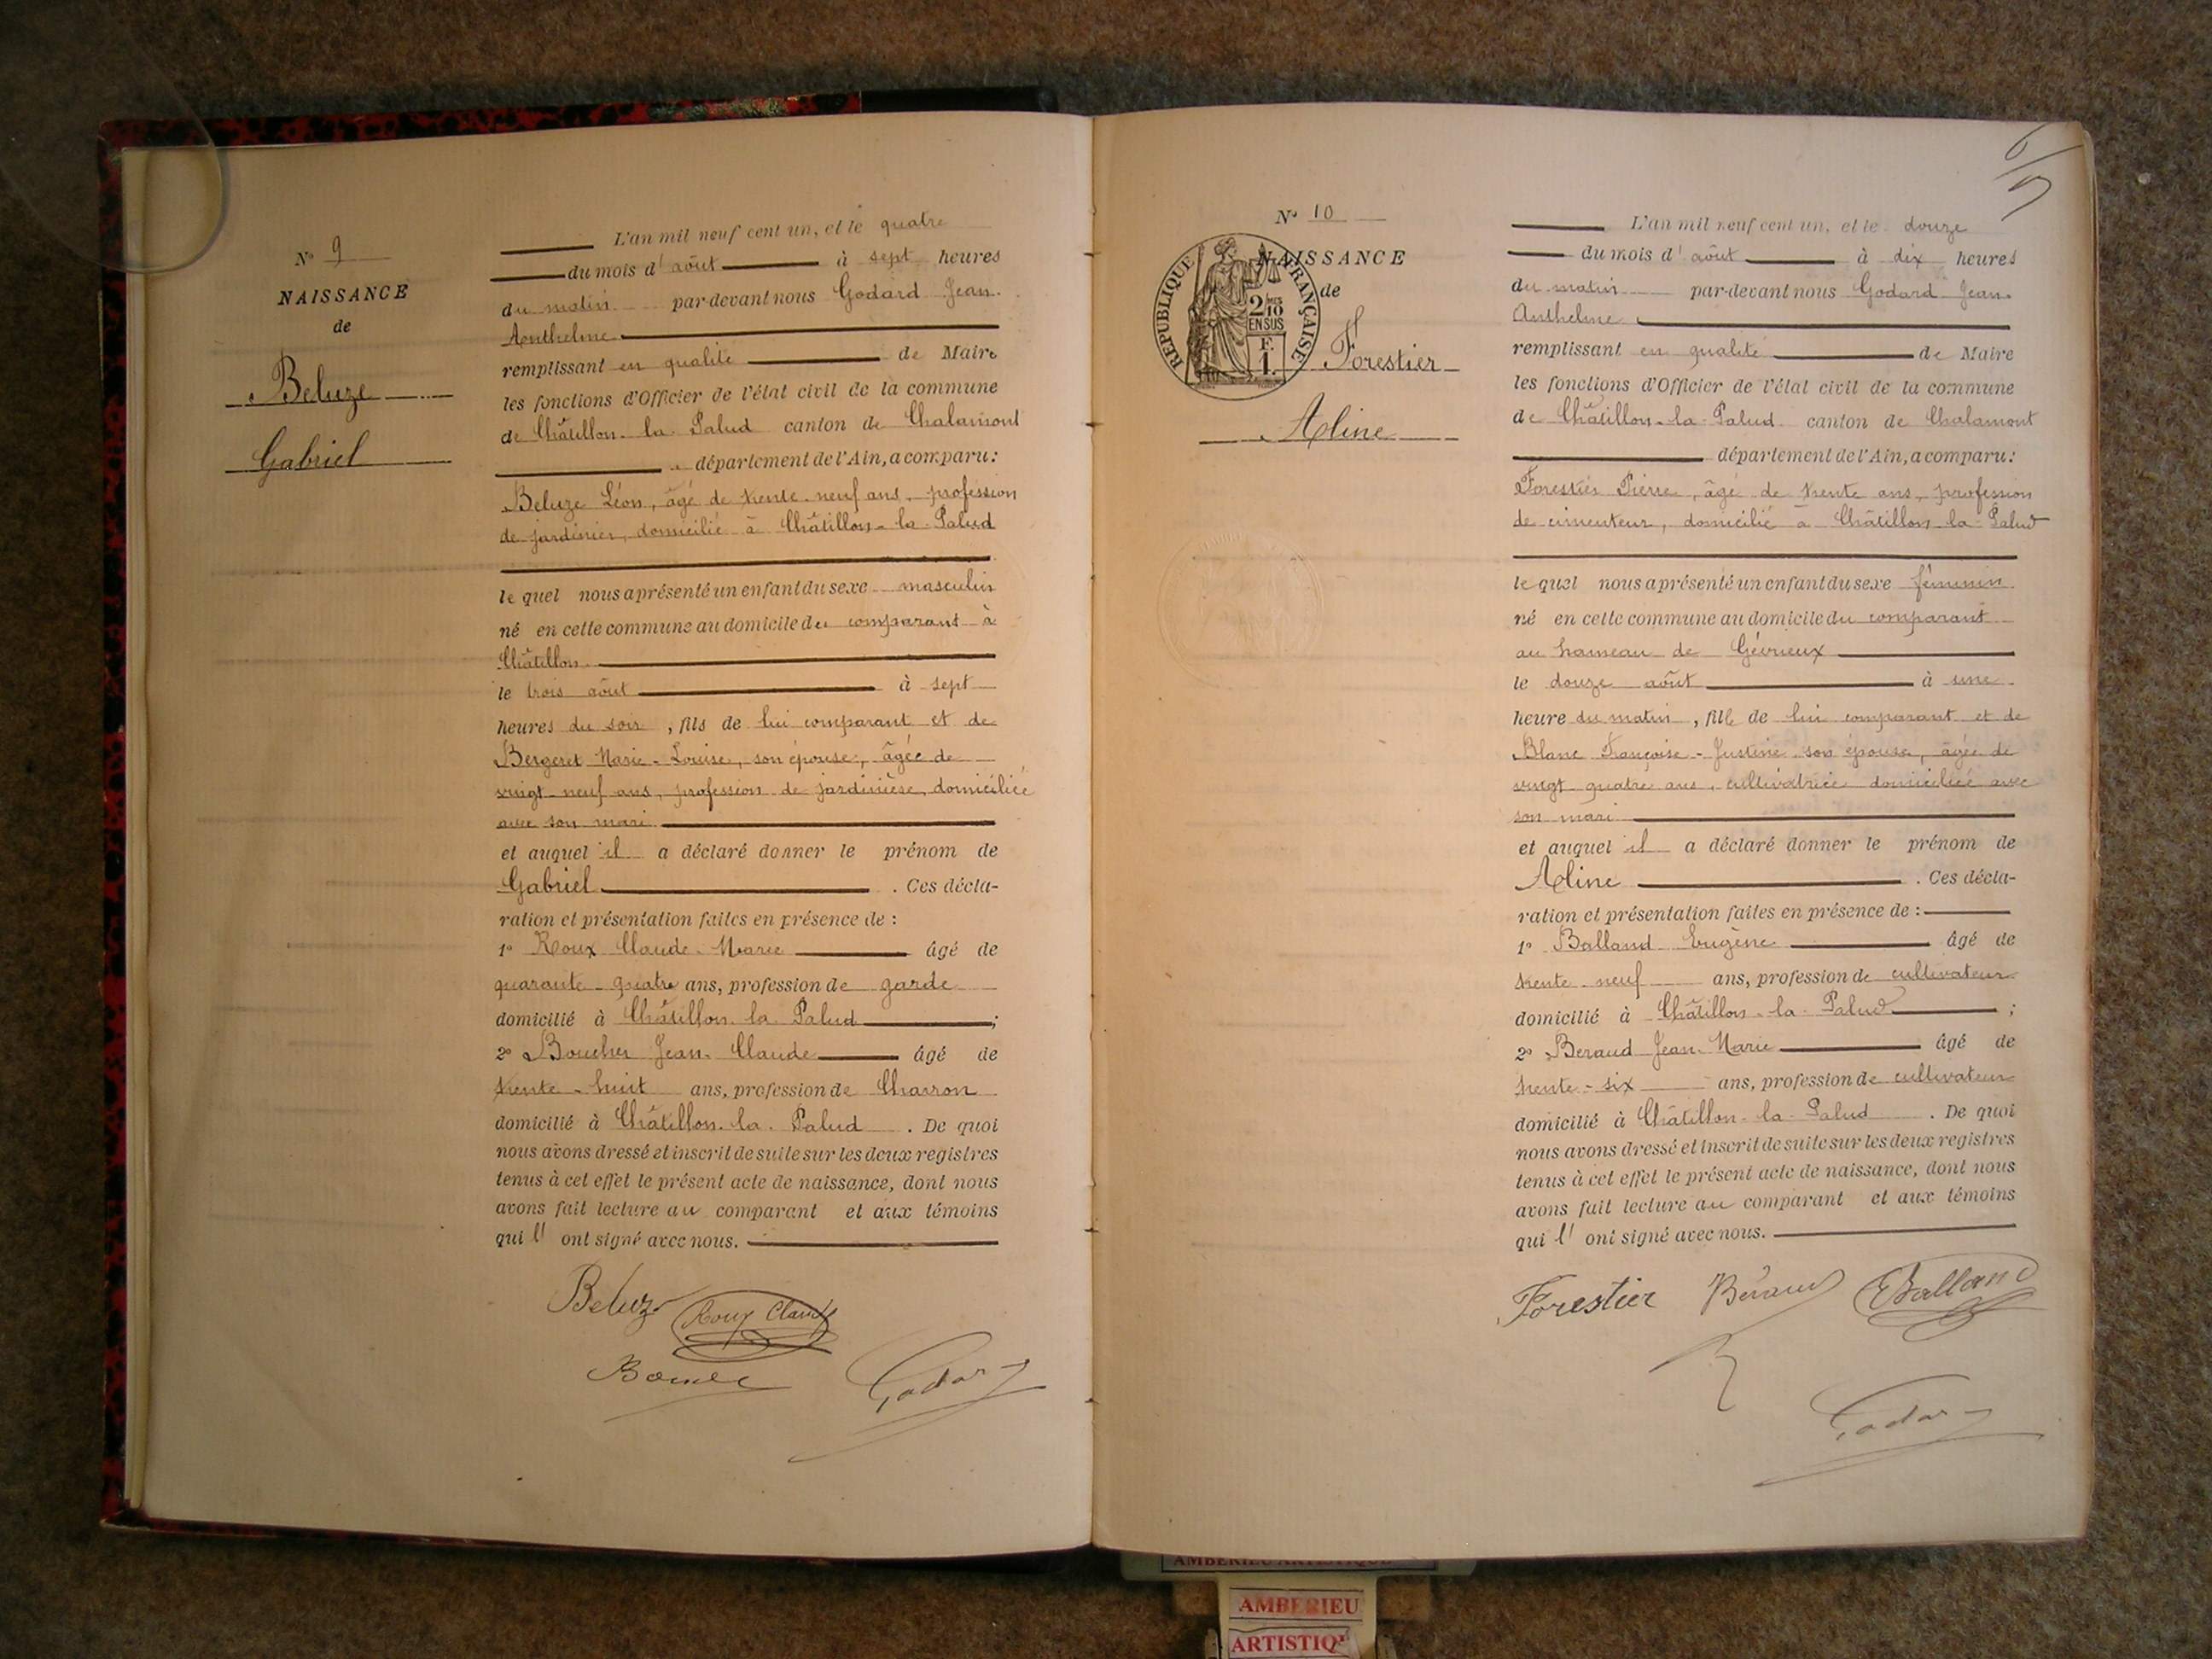 N° 9
NAISSANCE
de
Beluze
Gabriel
L'an mil neuf cent un, et le quatre
du mois d'août à sept heures
du matin par-devant nous Godard Jean-
Anthelme
remplissant en qualité de Maire
les fonctions d'Officier de l'état civil de la commune
de Châtillon-la-Palud canton de Chalamont
département de l'Ain, a comparu:
Beluze Léon, âgé de trente-neuf ans, profession
de jardinier, domicilié à Châtillon-la-Palud
lequel nous a présenté un enfant du sexe masculin
né en cette commune au domicile du comparant à
Châtillon
le trois août à sept
heures du soir, fils de lui comparant et de
Bergeret Marie-Louise, son épouse, âgée de
vingt-neuf ans, profession de jardinière, domiciliée
avec son mari
et auquel il a déclaré donner le prénom de
Gabriel. Ces décla-
ration et présentation faites en présence de:
1° Roux Claude-Marie âgé de
quarante-quatre ans, profession de garde
domicilié à Châtillon-la-Palud;
2° Boucher Jean-Claude âgé de
trente-huit ans, profession de Charron
domicilié à Châtillon-la-Palud. De quoi
nous avons dressé et inscrit de suite sur les deux registres
tenus à cet effet le présent acte de naissance, dont nous
avons fait lecture au comparant et aux témoins
qui l'ont signé avec nous.
Beluze Roux Claude
Godard
N° 10
NAISSANCE
de
RÉPUBLIQUE FRANÇAISE
2/10
EN SUS
F.
1.
Forestier
Aline
L'an mil neuf cent un, et le douze
du mois d'août à dix heures
du matin par-devant nous Godard Jean-
Anthelme
remplissant en qualité de Maire
les fonctions d'Officier de l'état civil de la commune
de Châtillon-la-Palud canton de Chalamont
département de l'Ain, a comparu:
Forestier Pierre, âgé de trente ans, profession
de cimenteur, domicilié à Châtillon-la-Palud
lequel nous a présenté un enfant du sexe féminin
né en cette commune au domicile du comparant
au hameau de Gévrieux
le douze août à une
heure du matin, fille de lui comparant et de
Blanc Françoise-Justine son épouse, âgée de
vingt quatre ans, cultivatrice domiciliée avec
son mari
et auquel il a déclaré donner le prénom de
Aline. Ces décla-
ration et présentation faites en présence de:
1° Balland Eugène âgé de
trente-neuf ans, profession de cultivateur
domicilié à Châtillon-la-Palud;
2° Beraud Jean-Marie âgé de
trente-six ans, profession de cultivateur
domicilié à Châtillon-la-Palud. De quoi
nous avons dressé et inscrit de suite sur les deux registres
tenus à cet effet le présent acte de naissance, dont nous
avons fait lecture au comparant et aux témoins
qui l'ont signé avec nous.
Forestier Béraud EBalland
Godard
AMBERIEU ARTISTIQUE
AMBERIEU
ARTISTIQ